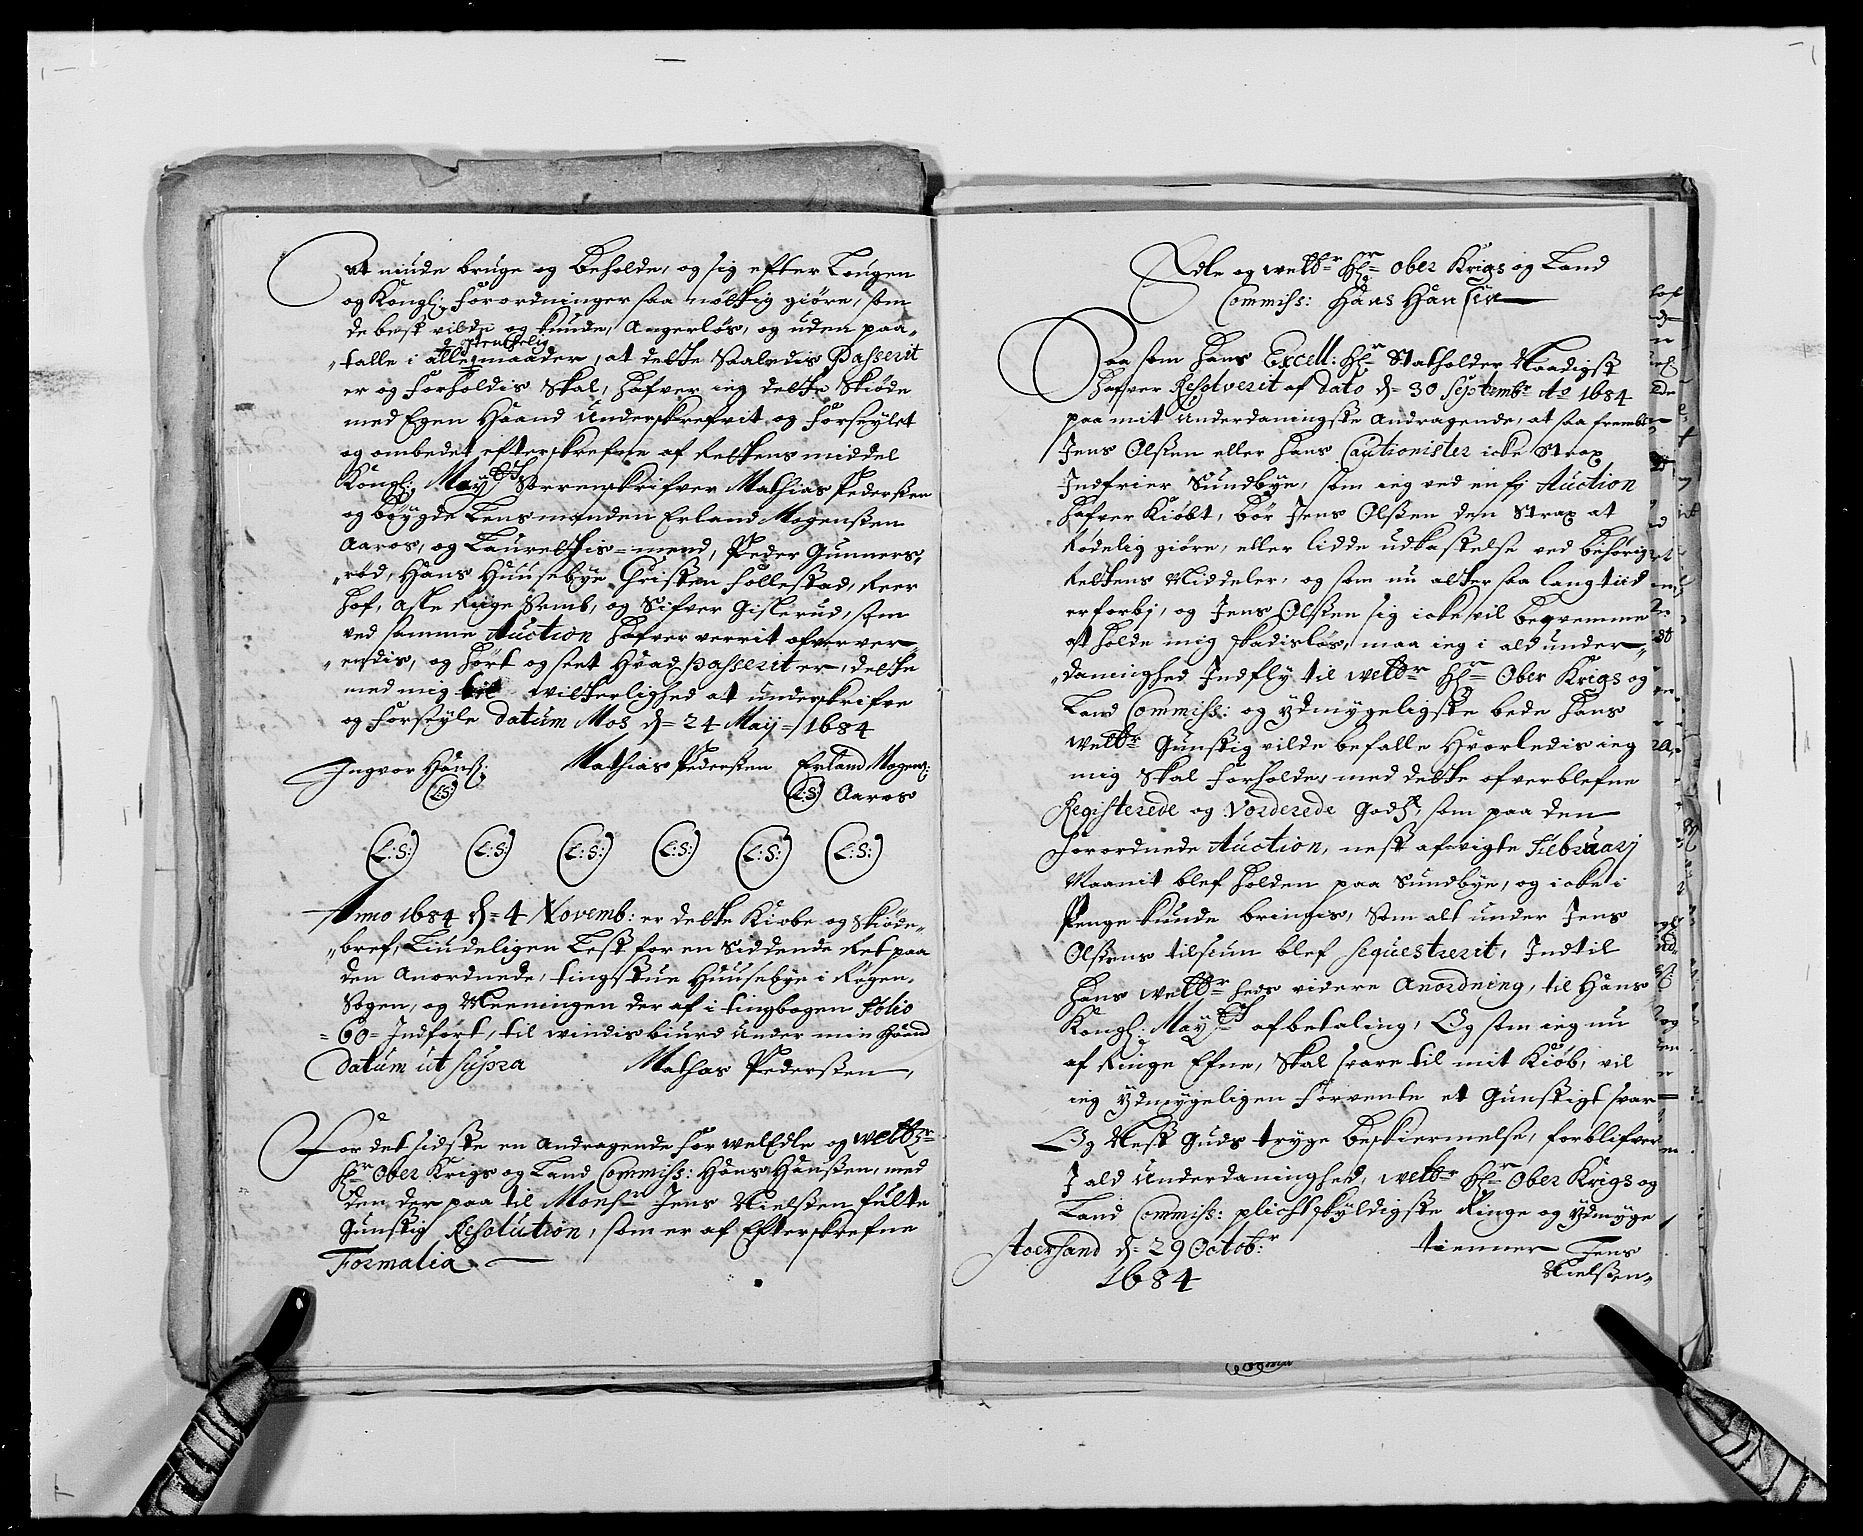 at niude bruge og beholde, og sig efter Lougen
og Kongl: Forordninger saa nøttig giøre, som
de best vilde og kunde, Angerløs, og uden paa„
„talle i alle maader, at dette Saaledis Passerit
er og forholdis Skal, hafver ieg dette Skiøde
med Egen Haand Underskrefvit og Forseylet
og ombedet efterskrefne af Rettens middel
Kongl: May: Sorrenskrifver Mathias Pederssen
og bøygde Lensmanden Erland Mogenssen
Aaros, og Laurettis=mend, Peder Gunners„
„rød, Hans Huusebye Christen Follestad, Reer
Hof, Aste Ruge Semb, og Sifver Gisterud, som
ved samme Auction hafver verrit ofverver„
„endis, og hørt og seet Hvad passerit er, dette
med mig til vitterlighed at underskrifve
og Forseyle Datum Mos d= 24 Maij 1684
Ingvor Hanss: Mathias Pederssen Erland Mogens:
(L:S) (L:S) Aaros
(L:S:) (L:S) (L:S:) (L:S:) (L:S:) (L:S:)
Anno 1684 d= 4 Novemb: er dette Kiøbe og Skiøde„
„bref, Liudeligen Lest for en Siddende Ret paa
den Anordnede, tingstue Huusebye i Røgen„
Sogen, og Meeningen der af i tingbogen Folio
=60= Indført, til windisbiurd under min Haand
Datum ut supra Mathas Pederssen,
For det sidste en Andragende for welEdle og welbr
Hr Ober Krigs og Land Commiss: Hans Hanssen, med
den der paa til Monsr Jens Nielssen fulte
Gunstig Resolution, som er af Efterskrefne
Formalia
Edle og welbr Hr Ober Krigs og Land
Commiss: Hans Hansen
Saa som Hans Excell: Hr Statholder Naadigst
Hafver Resolverit af dato d= 30 Septembr Ao 1684
paa mit Underdaningste Andragende, at saa frembt
Jens Olssen eller Hans Cautionister icke Strax
Indfrier Sundbye, som ieg ved en fj Auction
Hafver Kiøbt, bør Jens Olssen den Strax at
Rødelig giøre, eller lidde udkastelse ved behørig
Rettens Middeler, og som nu alt er saa lang tiid
er forbj, og Jens Olssen sig icke vil beqvemme
at holde mig skadisløs, maa ieg i ald under„
„danninghed Indfly til welbr Hr Ober Krigs og
Land Commiss: og Ydmygeligste bede Hans
welbr Gunstig vilde befalle Hvorledis ieg
mig Skal Forholde, med dette ofverblefne
Registerede og Vorderede Gods, som paa den
Forordnede Auction, nest afvigte Februarj
Maanit blef holden paa Sundbye, og icke i
Penge kunde bringis, Som alt under Jens
Olssens tilsiun blef sequestrerit, Indtil
Hans welbr heds videre Anordning, til Hans
Kongl: May: afbetaling, Og som ieg nu
af Ringe Efne, Skal svare til mit Kiøb, vil
ieg Ydmygeligen Forvente et Gunstigt svar
Og Nest Guds tryge beskiermelse, forblifver
J ald Underdaninghed, welbr Hr Ober Krigs og
Land Commiss: plichtskyldigste Ringe og Ydmyge
d= 29 Octobr: tienner Jens
1684 Nielssen„